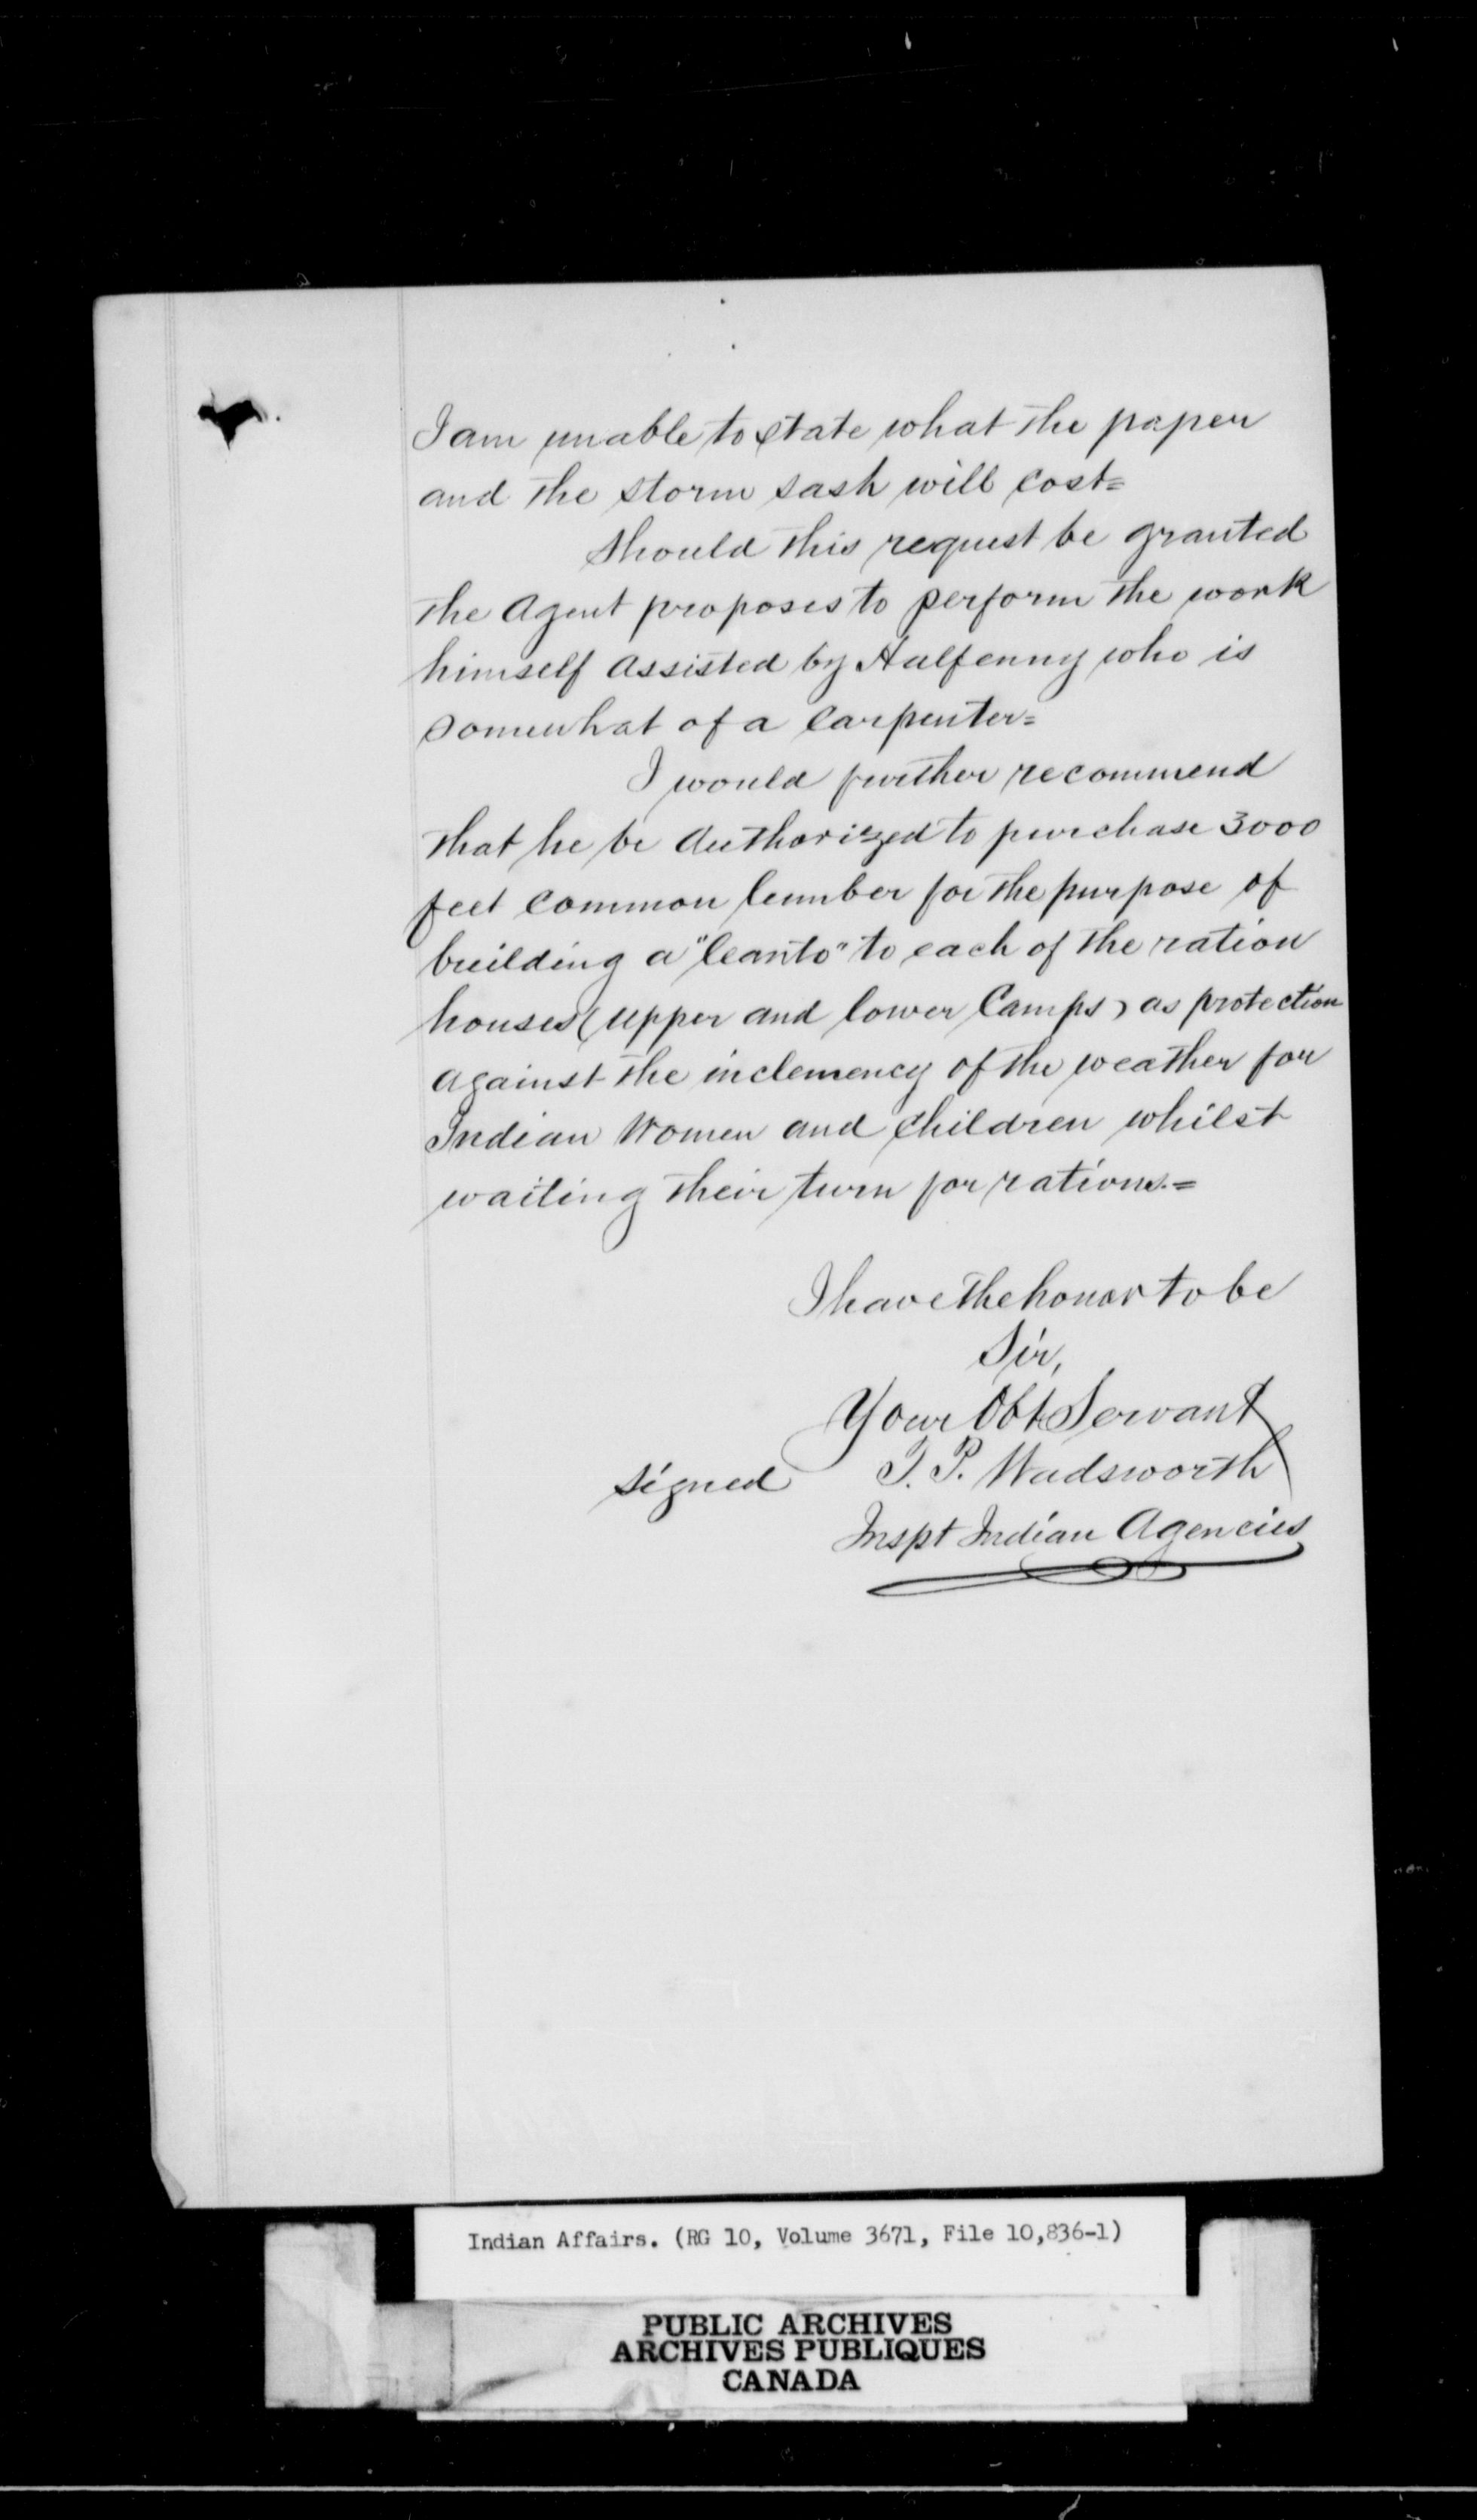 I am unable to state what the paper
and the storm sash will cost=
Should this request be granted
the Agent proposes to perform the work
himself assisted by Halfenny who is
somewhat of a Carpenter=
I would further recommend
that he be authorized to purchase 3000
feet common lumber for the purpose of
building a "leanto" to each of the ration
houses (upper and lower Camps) as protection
against the inclemency of the weather for
Indian Women and Children whilst
waiting their turn for rations.=
I have the honor to be
Sir,
Your Obt Servant
signed T. P. Wadsworth
Inspt Indian Agencies
Indian Affairs. (RG 10, Volume 3671, File 10,836-1)
PUBLIC ARCHIVES
ARCHIVES PUBLIQUES
CANADA